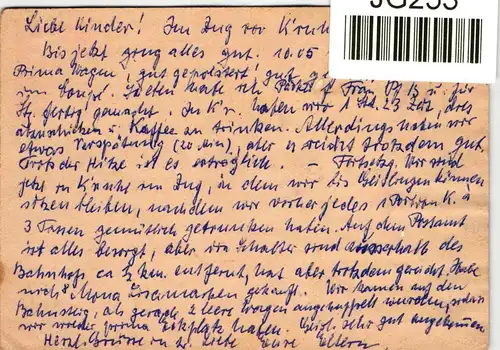 Liebe Kinder! Im Zug vor K
JG253
Bis jetzt ging alles gut. 10.05
Prima Wagen, gut gepolstert, gut
im Coupé. Soeben habe ich Päckch. f. Frau u. für
fertig gemacht. In K'r. haben wir 1 St. 23 Zeit, das
anzusehen u. Kaffee zu trinken. Allerdings haben wir
etwas Verspätung (20 Min), aber es reicht trotzdem gut.
Trotz der Hitze ist es erträglich. – Fortsetzg. Wir sind
jetzt in K'ruhe im Zug, in dem wir bis Geislingen können
sitzen bleiben, nachdem wir vorher jedes 1 Portion K. à
3 Tassen gemütlich getrunken haben. Auf dem Postamt
ist alles besorgt, aber die Schalter sind ausserhalb des
Bahnhofs ca ½ km. entfernt, hat aber trotzdem gereicht. Habe
noch 8 Mona Marken gekauft. Wir kamen auf den
Bahnsteig, als gerade 2 leere Wagen angekuppelt wurden, sodass
wir wieder prima Eckplätze haben. sehr gut angekommen
Herzl. Grüsse in Liebe Eure Eltern.